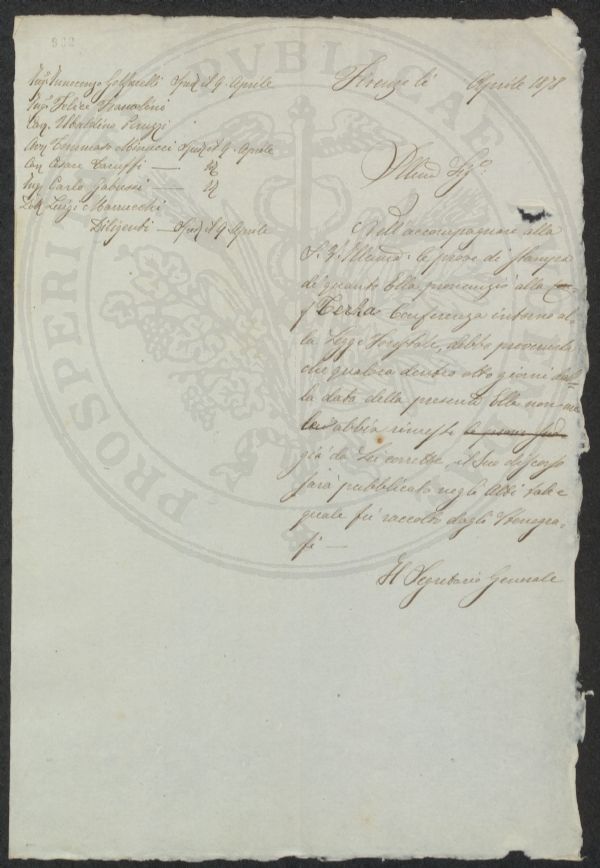 Ingr Vincenzo Goffarelli Sped. il 9. Aprile
Ingr Felice Francolini
Cav. Ubaldino Peruzzi
Avv. Tommaso Minucci Sped. il 9. Aprile
Cav. Cesare Taruffi — id
Ing. Carlo Gabussi — id
Dott. Luigi Marrucchi
Diligenti — Sped. il 9 Aprile
Firenze li Aprile 1878
Illmo Sigr.
Nell'accompagnare alla
S. V. Illuma. le prove di stampa
di quanto Ella pronunziò alla
Terza Conferenza intorno al-
la Legge Forestale, debbo prevenirla
che qualora dentro otto giorni dal-
la data della presente Ella non me
le abbia rinviate le prove
già da Lei corrette, il Suo discorso
sarà pubblicato negli Atti tale e
quale fu raccolto dagli Stenogra-
fi —
Il Segretario Generale